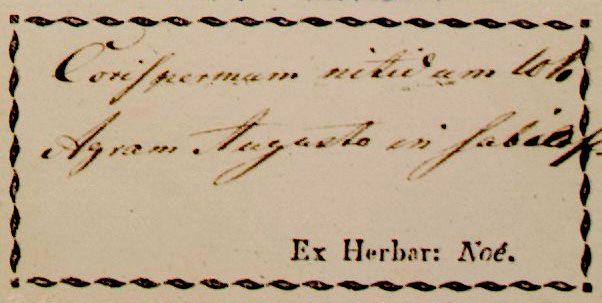 Corispermum nitidum
Agram Augusto in
Ex Herbar: Noé.